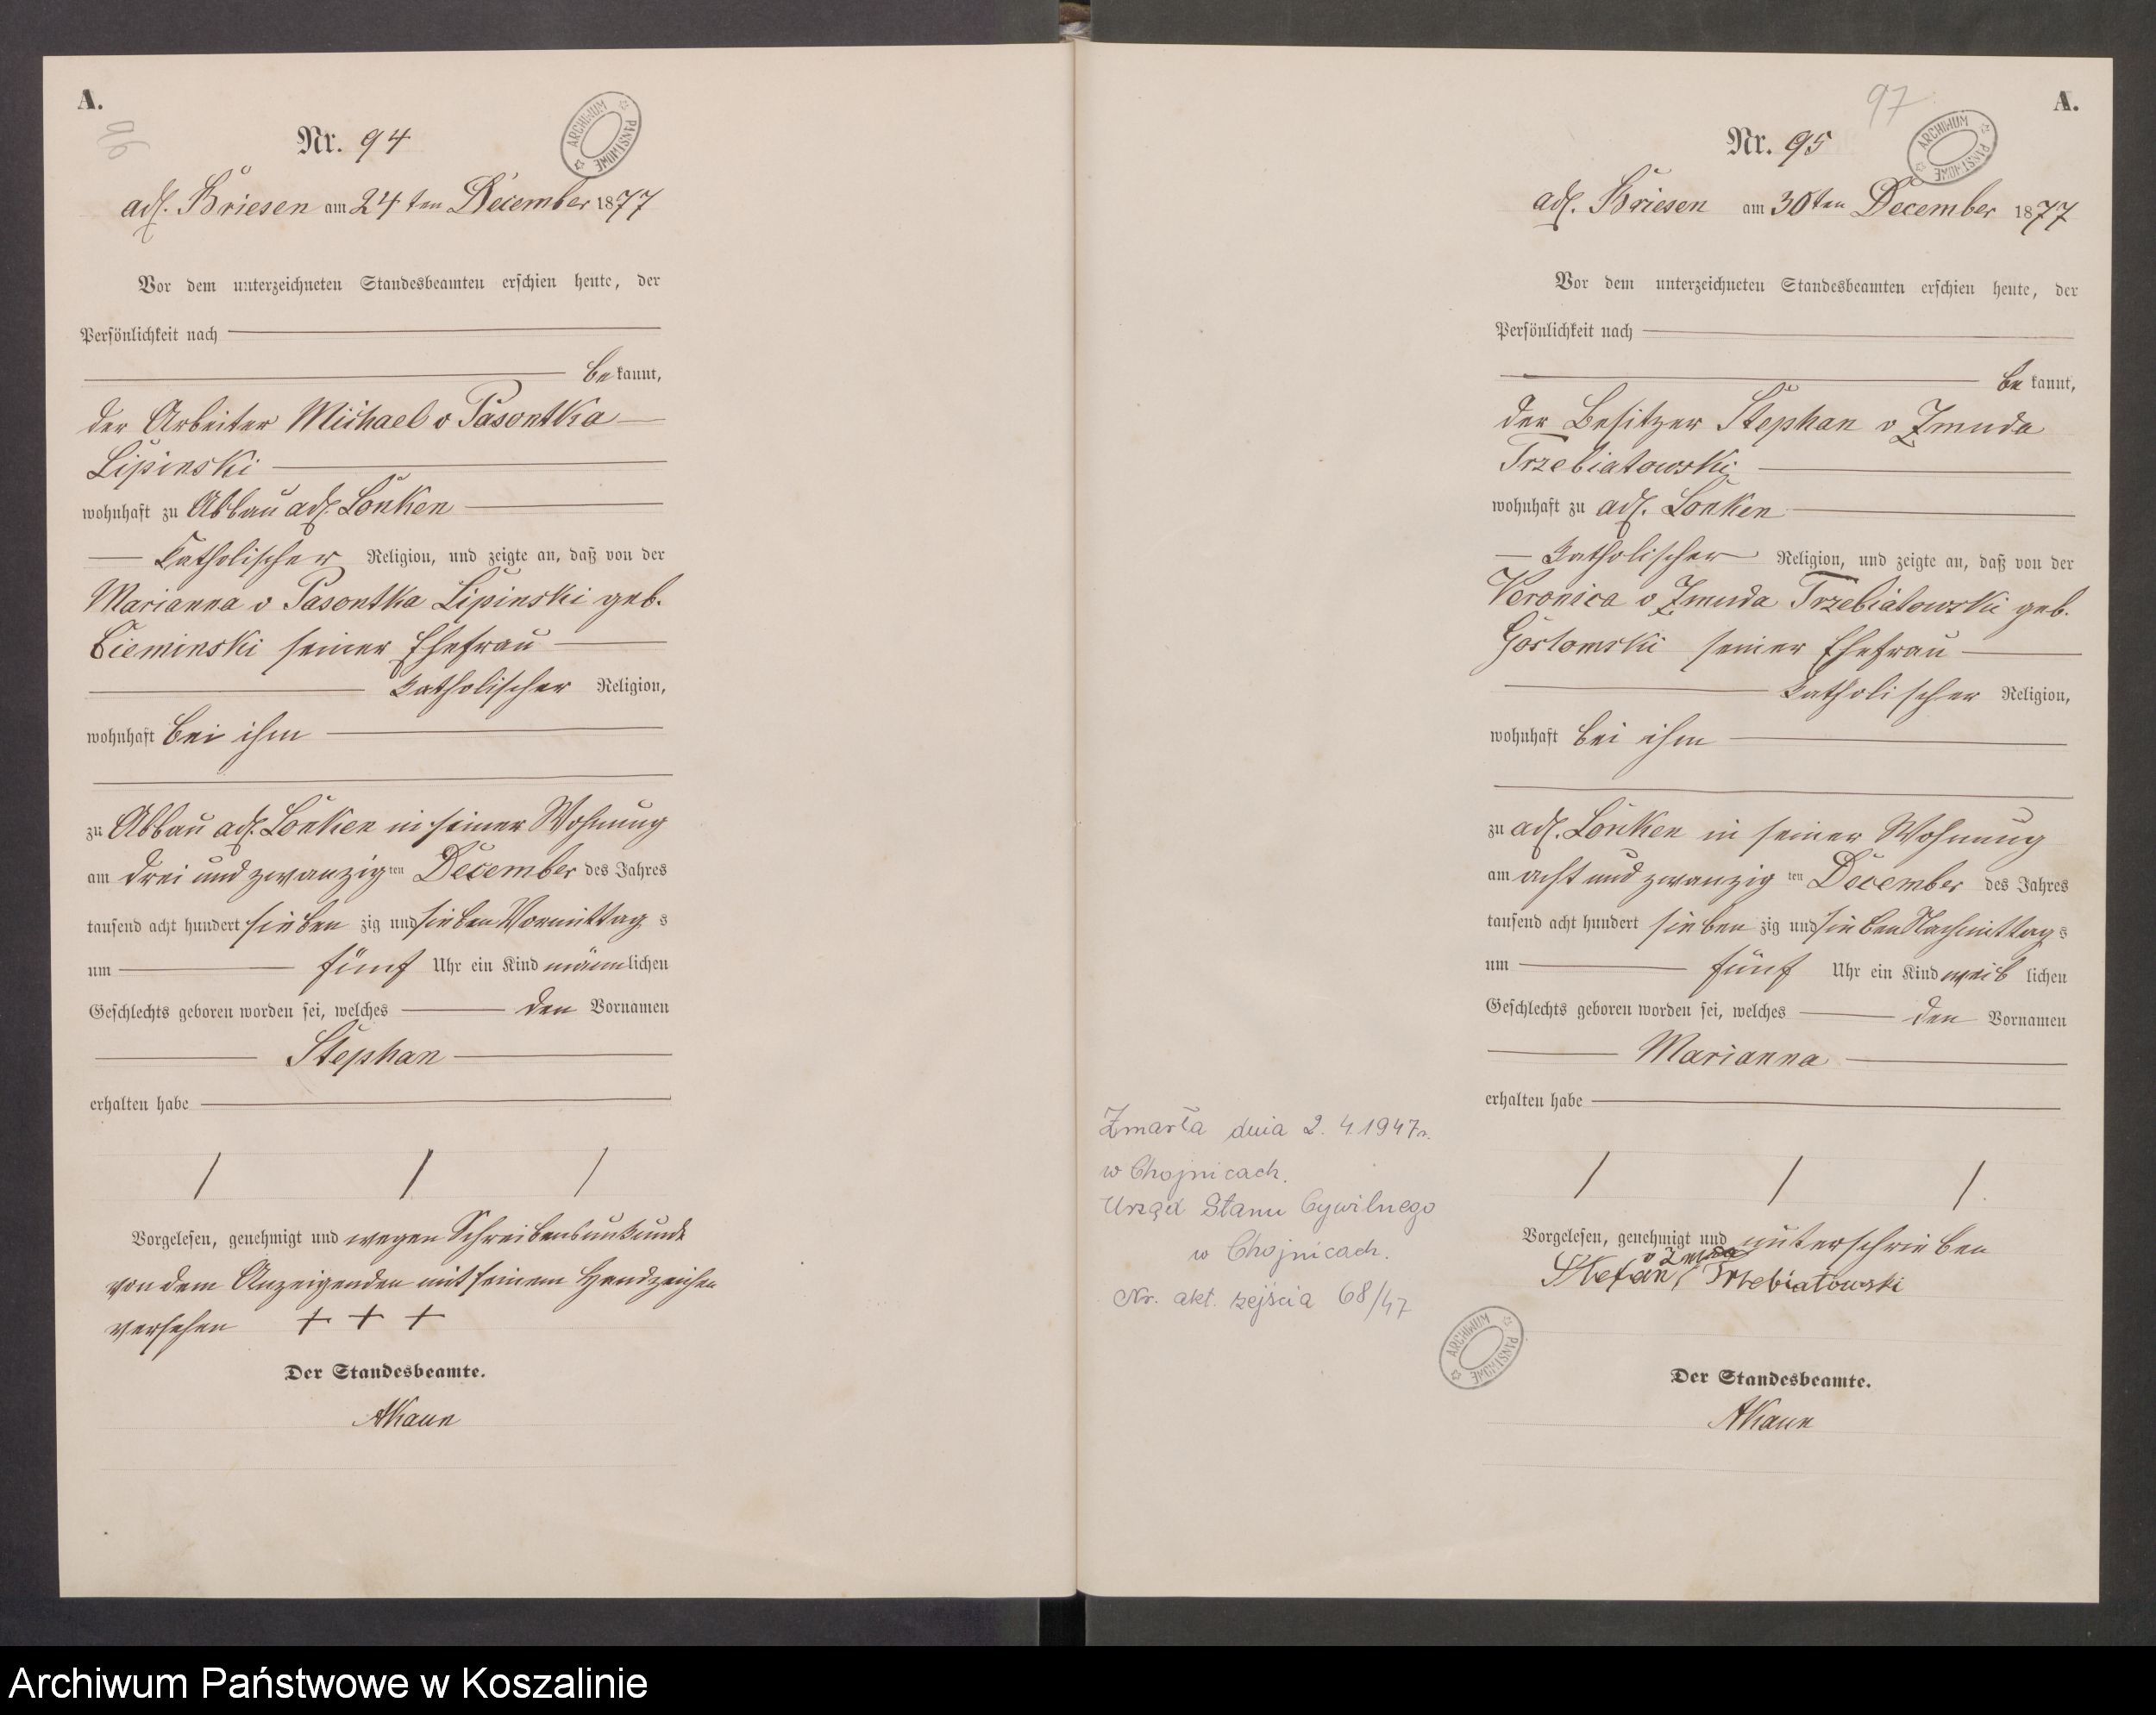 A.
96
Nr. 94
ARCHIWUM PAŃSTWOWE
adl. Briesen am 24ten December 1877
Vor dem unterzeichneten Standesbeamten erschien heute, der
Persönlichkeit nach
bekannt,
der Arbeiter Michael v Pasontka
Lipinski
wohnhaft zu Abbau adl. Lonken
Katholischer Religion, und zeigte an, daß von der
Marianna v Pasontka Lipinski geb.
Cieminski seiner Ehefrau
Katholischer Religion,
wohnhaft bei ihm
zu Abbau adl. Lonken in seiner Wohnung
am drei und zwanzigten December des Jahres
tausend acht hundert siebenzig und sieben Vormittags
um fünf Uhr ein Kind männlichen
Geschlechts geboren worden sei, welches den Vornamen
Stephan
erhalten habe
Vorgelesen, genehmigt und wegen Schreibensunkunde
von dem Anzeigenden mit seinem Handzeichen
versehen + + +
Der Standesbeamte.
AKaun
97
A.
Nr. 95
ARCHIWUM PAŃSTWOWE
adl. Briesen am 30ten December 1877
Vor dem unterzeichneten Standesbeamten erschien heute, der
Persönlichkeit nach
bekannt,
der Besitzer Stephan v Zmuda
Trzebiatowski
wohnhaft zu adl. Lonken
Katholischer Religion, und zeigte an, daß von der
Veronica v Zmuda Trzebiatowski geb.
Gostomski seiner Ehefrau
Katholischer Religion,
wohnhaft bei ihm
zu adl. Lonken in seiner Wohnung
am acht und zwanzigten December des Jahres
tausend acht hundert siebenzig und sieben Nachmittags
um fünf Uhr ein Kind weiblichen
Geschlechts geboren worden sei, welches den Vornamen
Marianna
erhalten habe
Vorgelesen, genehmigt und unterschrieben
v Zmuda
Stefan Trzebiatowski
Der Standesbeamte.
AKaun
Zmarła dnia 2.4.1947r.
w Chojnicach.
Urząd Stanu Cywilnego
w Chojnicach.
Nr. akt. zejścia 68/47
ARCHIWUM PAŃSTWOWE
Archiwum Państwowe w Koszalinie